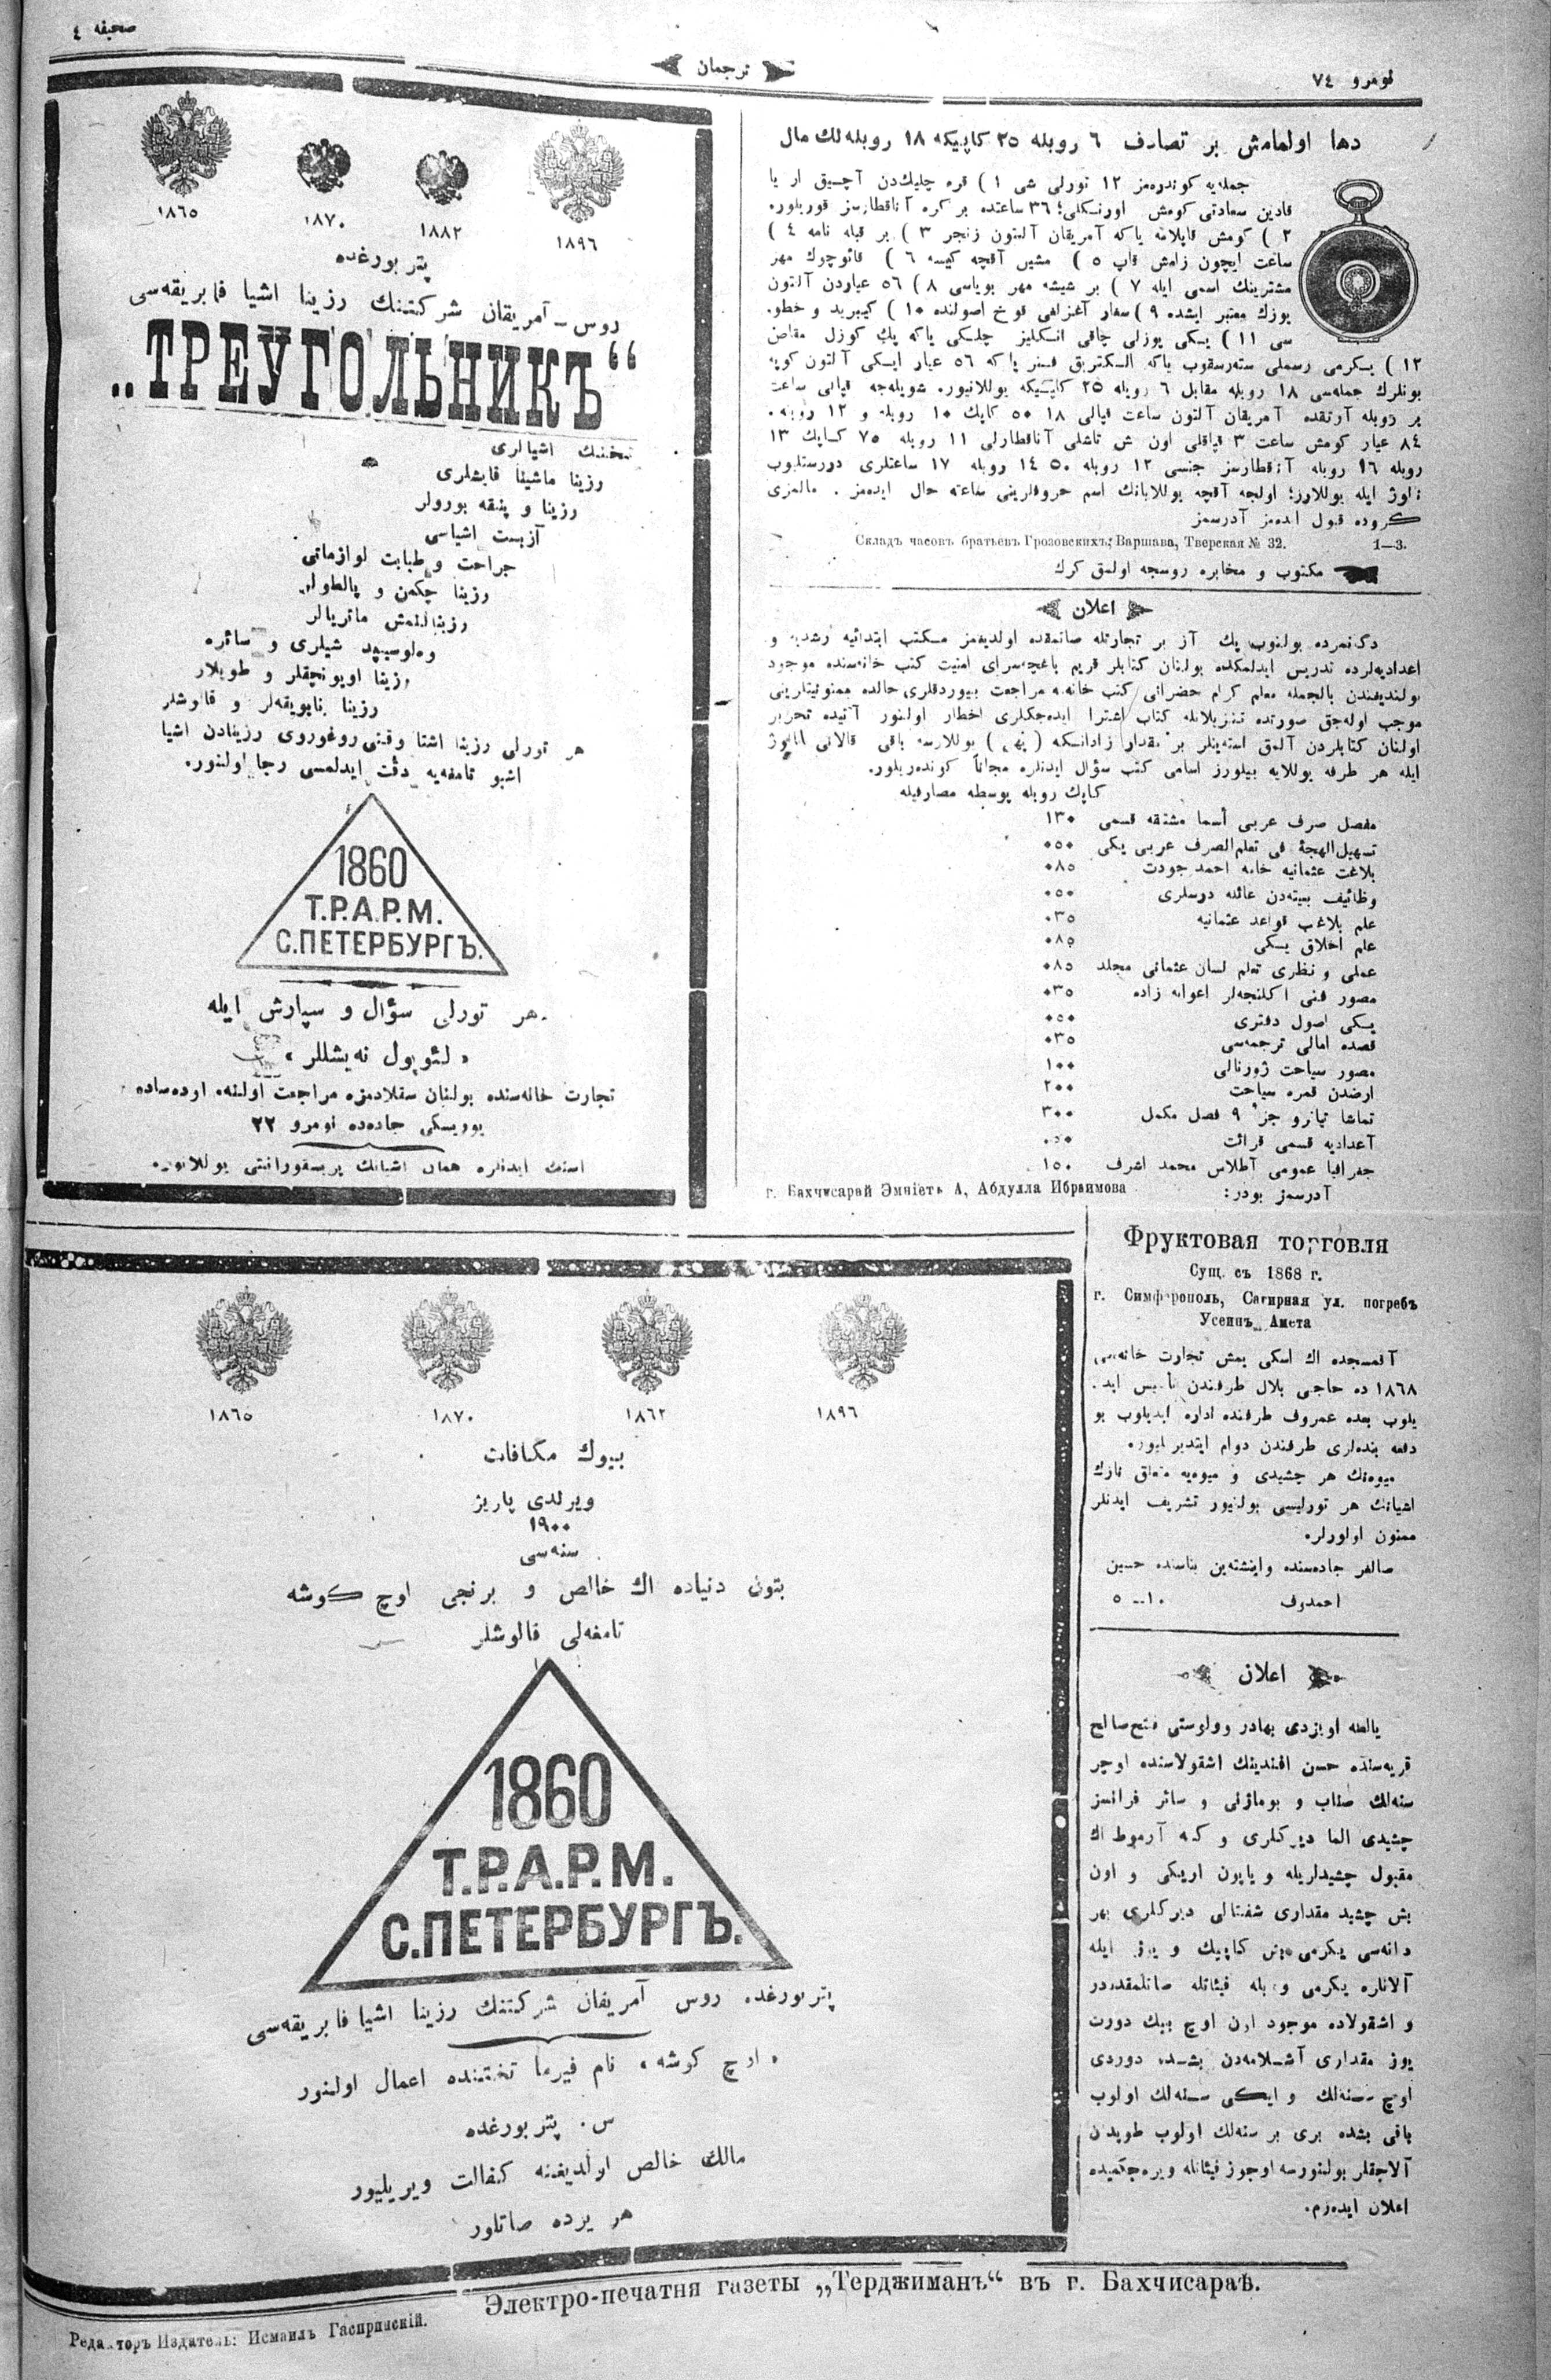 نومرو ٧٤
ترجمان
صحیفه ٤
دها اولمامش بر تصادف ٦ روبله ٢٥ کاپیکه ١٨ روبله‌لك مال
جمله‌یه کوندره‌مز ١٢ تورلی شی ١ ) قره چلیك‌دن آچیق ار یا
قادین سعادتی کومش اورنکلی؛ ٣٦ ساعتده بر کره آناقطارسز قوریلوره
٢ ) کومش قاپلانه یاکه آمریقان آلتون زنجر ٣ ) بر قبله نامه ٤ )
ساعت ایچون زامش قاپ ٥ ) مشین آقچه کیسه ٦ ) قائوچوك مهر
مشترینك اسمی ایله ٧ ) بر شیشه مهر بویاسی ٨ ) ٥٦ عیاردن آلتون
یوزك معتبر ایشده ٩ ) سغار آغزلغی قوخ اصولنده ١٠ ) کیبرید و خطو.
سی ١١ ) یکی یوزلی چاقی انکلیز چلکی یاکه پك کوزل مقاص
١٢ ) یکرمی رسملی سته‌رسقوب یاکه الکتریق فنر یاکه ٥٦ عیار ایکی آلتون کوپه
بونلرك جمله‌سی ١٨ روبله مقابل ٦ روبله ٢٥ کاپیکه یوللانیوره شویله‌جه قپالی ساعت
بر روبله آرتقده آمریقان آلتون ساعت قپالی ١٨ ٥٠ کاپك ١٠ روبله و ١٢ روبله.
٨٤ عیار کومش ساعت ٣ قپاقلی اون ش تاشلی آناقطارلی ١١ روبله ٧٥ کاپك ١٣
روبله ١٦ روبله آناقطارسز جنسی ١٢ روبله ٥٠ ١٤ روبله ١٧ ساعتلری دورستلیوب
نالوژ ایله یوللارز؛ اولجه آقچه یوللایانك اسم حروفلرینی ساعته حال ایده‌مز . مالمزی
کروده قبول ایده‌مز آدرسمز
Складъ часовъ братьевъ Грозовскихъ; Варшава, Тверская № 32. 1—3.
مکتوب و مخابره روسجه اولمق کرك
اعلان
دکانمزده بولنوب پك آز بر تجارتله صاتمقده اولدیغمز مکتب ابتدائیه رشدیه و
اعدادیه‌لرده تدریس ایدلمکده بولنان کتابلر قریم باغچه‌سرای امنیت کتب خانه‌سنده موجود
بولندیغندن بالجمله معلم کرام حضراتی کتب خانه‌مه مراجعت بیوردقلری حالده ممنونیتلرینی
موجب اوله‌جق صورتده تنزیلاتله کتاب اشترا ایده‌جکلری اخطار اولنور آتیده تحریر
اولنان کتابلردن آلمق استه‌ینلر بر مقدار زادانکه (پهی) یوللارسه باقی قالانی نالوژ
ایله هر طرفه یوللایه بیلورز اسامی کتب سؤال ایدنلره مجاناً کوندریلور.
کاپك روبله پوسطه مصارفیله
مفصل صرف عربی أسما مشتقه قسمی ١٣٠
تسهیل‌الهجهٔ فی تعلم‌الصرف عربی یکی ٠٥٠
بلاغت عثمانیه خامه احمد جودت ٠٨٥
وظائیف بیتیه‌دن عائله درسلری ٠٥٠
علم بلاغب قواعد عثمانیه ٠٣٥
علم اخلاق یکی ٠٨٥
عملی و نظری تعلم لسان عثمانی مجلد ٠٨٥
مصور فنی اکلنجه‌لر اعوانه زاده ٠٣٥
یکی اصول دفتری ٠٥٠
قصده امالی ترجمه‌سی ٠٣٥
مصور سیاحت ژورنالی ١٠٠
ارضدن قمره سیاحت ٢٠٠
تماشا تیاترو جز ٩ فصل مکمل ٣٠٠
آعدادیه قسمی قرائت
جغرافیا عمومی آطلاس محمد اشرف ١٥٠
آدرسمز بودر:
г. Бахчисарай Эмніетъ А, Абдулла Ибраимова
١٨٦٥ ١٨٧٠ ١٨٨٢ ١٨٩٦
پتربورغده
روس ـ آمریقان شرکتنك رزینا اشیا فابریقه‌سی
„ТРЕУГОЛЬНИКЪ“
تختنك اشیالری
رزینا ماشینا قایشلری
رزینا و پنقه بورولر
آزبست اشیاسی
جراحت و طبابت لوازماتی
رزینا چکمن و پالطولر
رزینالنمش ماتریالر
وه‌لوسیپید شیلری و سائره
رزینا اویونچقلر و طوپلار
رزینا نابویقه‌لر و قالوشلر
هر تورلی رزینا اشتا وقتی روغوروی رزینادن اشیا
اشبو تامغه‌یه دقت ایدلمسی رجا اولنور.
1860
Т.Р.А.Р.М.
С.ПЕТЕРБУРГЪ.
هر تورلی سؤال و سپارش ایله
« لئوپول نه‌یشللر »
تجارت خانه‌سنده بولنان سقلادمزه مراجعت اولنه. اوده‌ساده
یوریسکی جاده‌ده نومرو ٢٢
استك ایدنلره همان اشیانك پریسقورانتی یوللانوره
١٨٦٥ ١٨٧٠ ١٨٦٢ ١٨٩٦
بیوك مکافات
ویرلدی پاریز
١٩٠٠
سنه‌سی
بتون دنیاده اك خالص و برنجی اوچ کوشه
تامغه‌لی قالوشلر
1860
Т.Р.А.Р.М.
С.ПЕТЕРБУРГЪ.
پتربورغده روس آمریقان شرکتنك رزینا اشیا فابریقه‌سی
« اوچ کوشه » نام فیرما تختنده اعمال اولنور
س. پتربورغده
مالك خالص اولدیغنه کفالت ویریلیور
هر یرده صاتلور
Фруктовая торговля
Сущ. съ 1868 г.
г. Симферополь, Сагирная ул. погребъ
Усеинъ Амета
آقمسجده اك اسکی یمش تجارت خانه‌سی
١٨٦٨ ده حاجی بلال طرفندن تأسیس اید.
یلوب بعده عمروف طرفنده اداره ایدیلوب بو
دفعه بنده‌لری طرفندن دوام ایتدیرلیور.
میوه‌نك هر چشیدی و میوه‌یه متعلق نازك
اشیانك هر تورلیسی بولنیور تشریف ایدنلر
ممنون اولورلر.
صالغر جاده‌سنده واینشته‌ین بناسنده حسین
احمدوف ١٠ـ٥
اعلان
یالطه اویزدی بهادر وولوستی فتح صالح
قریه‌سنده حسن افندینك اشقولاسنده اوچر
سنه‌لك صناب و بوماژنی و سائر فرانسز
چشیدی الما دیرکلری و کنه آرموط اك
مقبول چشیدلریله و یاپون اریکی و اون
بش چشید مقداری شفتالی دیرکلری بهر
دانه‌سی یکرمی بش کاپیك و یوز ایله
آلانلره یکرمی روبله فیئاتله صاتلمقده‌در
و اشقولاده موجود اون اوچ بیك دورت
یوز مقداری آشلامه‌دن بشده دوردی
اوچ سنه‌لك و ایکی سنه‌لك اولوب
باقی بشده بری بر سنه‌لك اولوب طوپدن
آلاجقلر بولنورسه اوجوز فیئاتله ویره‌جکمیده
اعلان ایده‌رم.
Электро-печатня газеты „Терджиманъ“ въ г. Бахчисараѣ.
Редакторъ Издатель: Исмаилъ Гаспринскій.